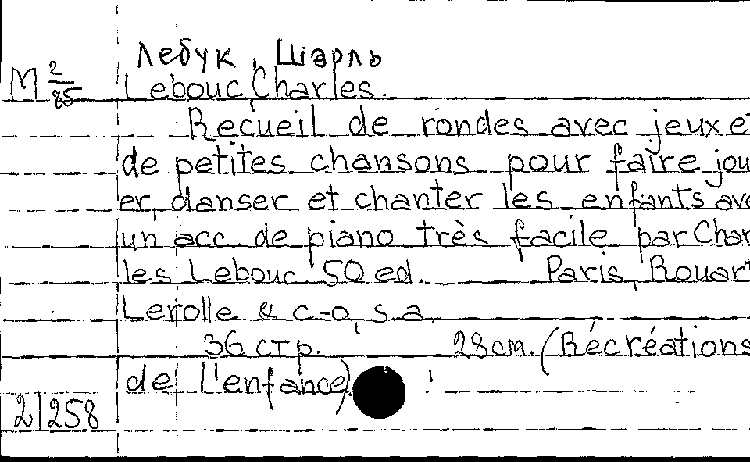 Лебук, Шарль
М 2/85 Lebouc, Charles.
Recueil de rondes avec jeux et
de petites chansons pour faire jou
er, danser et chanter les enfants ave
un acc. de piano très facile par Char
les Lebouc 50 ed. Paris, Rouart
Lerolle & c-o, s.a.
36 стр. 28 cm. (Récréations
de l'enfance)
21258